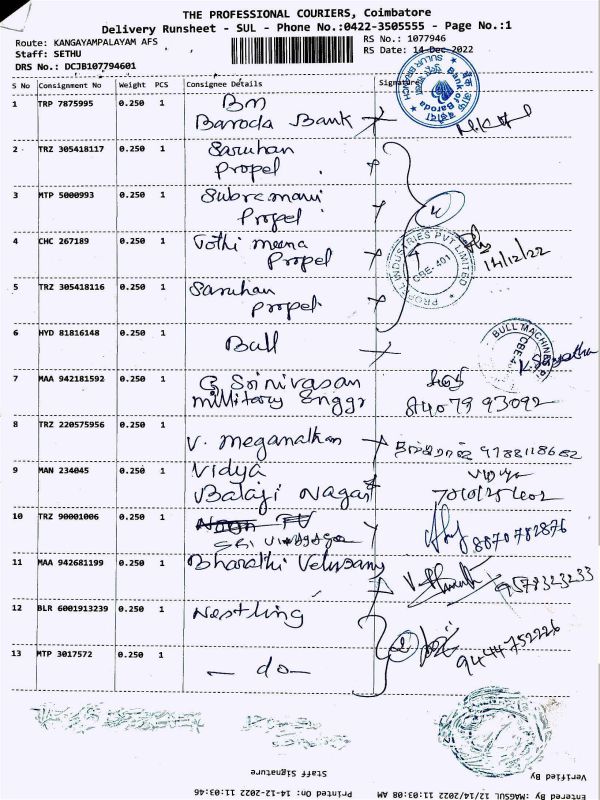 THE PROFESSIONAL COURIERS, Coimbatore
Delivery Runsheet - SUL - Phone No.:0422-3505555 - Page No.:1
Route: KANGAYAMPALAYAM AFS RS No.: 1077946
Staff: SETHU RS Date: 14-Dec-2022
DRS No.: DCJB107794601
S No Consignment No Weight PCS Consignee Details Signature
1 TRP 7875995 0.250 1 BM
Baroda Bank
Bank of Baroda
SULUR BRANCH
2 TRZ 305418117 0.250 1 Saruhan
Propel
3 MTP 5000993 0.250 1 Subramani
Propel
4 CHC 267189 0.250 1 Jothi meena
Propel
PROPEL INDUSTRIES PVT LIMITED
CBE-401
14/12/22
5 TRZ 305418116 0.250 1 Saruhan
propel
6 HYD 81816148 0.250 1 Bull
BULL MACHINES
7 MAA 942181592 0.250 1 G Srinivasan
Millitory Enggr
84079 93092
8 TRZ 220575956 0.250 1 V. meganathan
9788118682
9 MAN 234045 0.250 1 Vidya
Balaji Nagar
10 TRZ 90001006 0.250 1
8870782876
11 MAA 942681199 0.250 1 Bharathi Velusamy
9578323233
12 BLR 6001913239 0.250 1 Nestling
9444752226
13 MTP 3017572 0.250 1 - do -
Staff Signature Verified By
Printed On: 14-12-2022 11:03:46 Entered By :MAGSUL 12/14/2022 11:03:08 AM